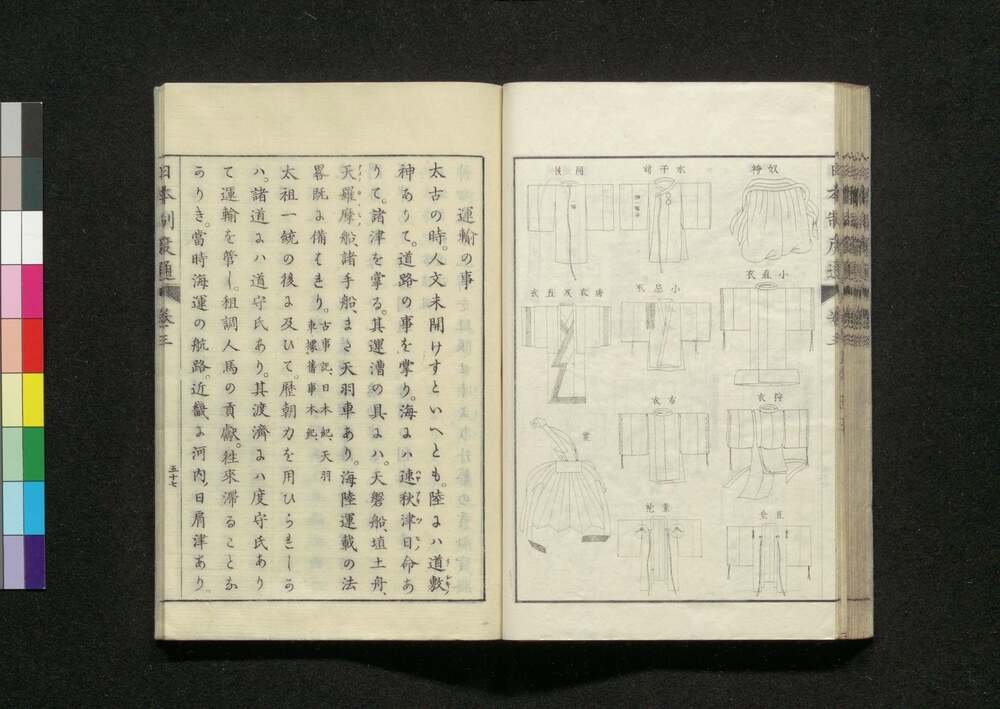 奴袴
水干諸
小直衣
小忌衣
狩衣
布衣
裳
直垂
素袍
運輸の事
太古の時。人文未開けすといへとも。陸には道敷
神ありて。道路の事を掌り。海には速秋津日命あ
りて。諸津を掌る。其運漕の具には。天磐船、埴土舟、
天羅摩船、諸手船、また天羽車あり。海陸運載の法
畧既に備はれり。古事記、日本紀、天羽
車據舊事本紀、
太祖一統の後に及ひて。歴朝力を用ひられしか
ハ。諸道にハ道守氏あり。其渡濟にハ度守氏あり
て運輸を管し。租調人馬の貢獻。往來滞ることな
かりき。當時海運の航路。近畿に河内、日肩津あり
日本制度通
卷三
五十七